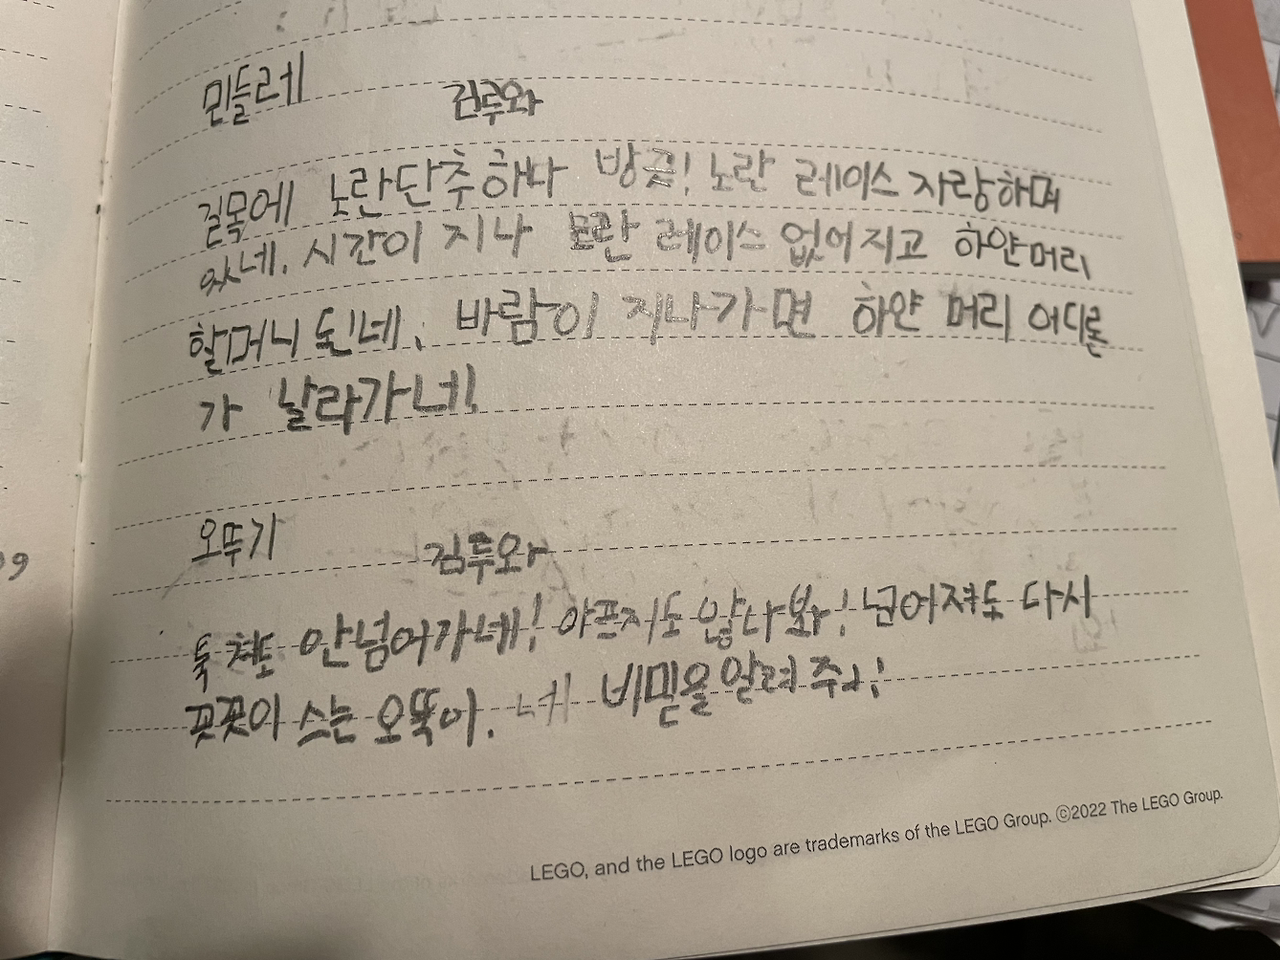 민들레
김루와
길목에 노란단추하나 방긋! 노란 레이스 자랑하며
있네. 시간이 지나 노란 레이스 없어지고 하얀머리
할머니 돼네. 바람이 지나가면 하얀 머리 어디론
가 날라가네!
오뚜기
김루와
툭 쳐도 안넘어가네! 아프지도 않나봐! 넌어져도 다시
꼿꼿이 스는 오뚝이. 네 비밀을 알려 주라!
LEGO, and the LEGO logo are trademarks of the LEGO Group. ©2022 The LEGO Group.